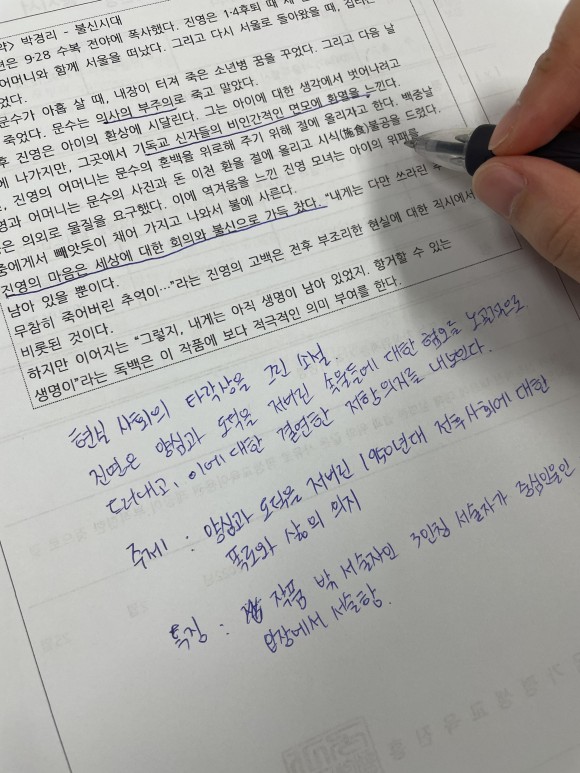 약> 박경리 - 불신시대
편은 9·28 수복 전야에 폭사했다. 진영은 1·4후퇴 때 세
어머니와 함께 서울을 떠났다. 그리고 다시 서울로 돌아왔을 때,
었다.
문수가 아홉 살 때, 내장이 터져 죽은 소년병 꿈을 꾸었다. 그리고 다음 날
죽었다. 문수는 의사의 부주의로 죽고 말았다.
후 진영은 아이의 환상에 시달린다. 그는 아이에 대한 생각에서 벗어나려고
에 나가지만, 그곳에서 기독교 신자들의 비인간적인 면모에 환멸을 느낀다.
, 진영의 어머니는 문수의 혼백을 위로해 주기 위해 절에 올리자고 한다. 백중날
영과 어머니는 문수의 사진과 돈 이천 환을 절에 올리고 시식(施食)불공을 드렸다.
은 의외로 물질을 요구했다. 이에 역겨움을 느낀 진영 모녀는 아이의 위패를
중에게서 빼앗듯이 채어 가지고 나와서 불에 사른다.
진영의 마음은 세상에 대한 회의와 불신으로 가득 찼다. “내게는 다만 쓰라린 추
남아 있을 뿐이다.
무참히 죽어버린 추억이…”라는 진영의 고백은 전후 부조리한 현실에 대한 직시에서
비롯된 것이다.
하지만 이어지는 “그렇지, 내게는 아직 생명이 남아 있었지. 항거할 수 있는
생명이”라는 독백은 이 작품에 보다 적극적인 의미 부여를 한다.
현실 사회의 타락상을 그린 소설.
진영은 양심과 도덕을 저버린 속물들에 대한 혐오를 노골적으로
드러내고, 이에 대한 결연한 저항의지를 내보인다.
주제 : 양심과 도덕을 저버린 1950년대 전후사회에 대한
폭로와 삶의 의지
특징 : 작품 밖 서술자인 3인칭 서술자가 중심인물인
입장에서 서술함.